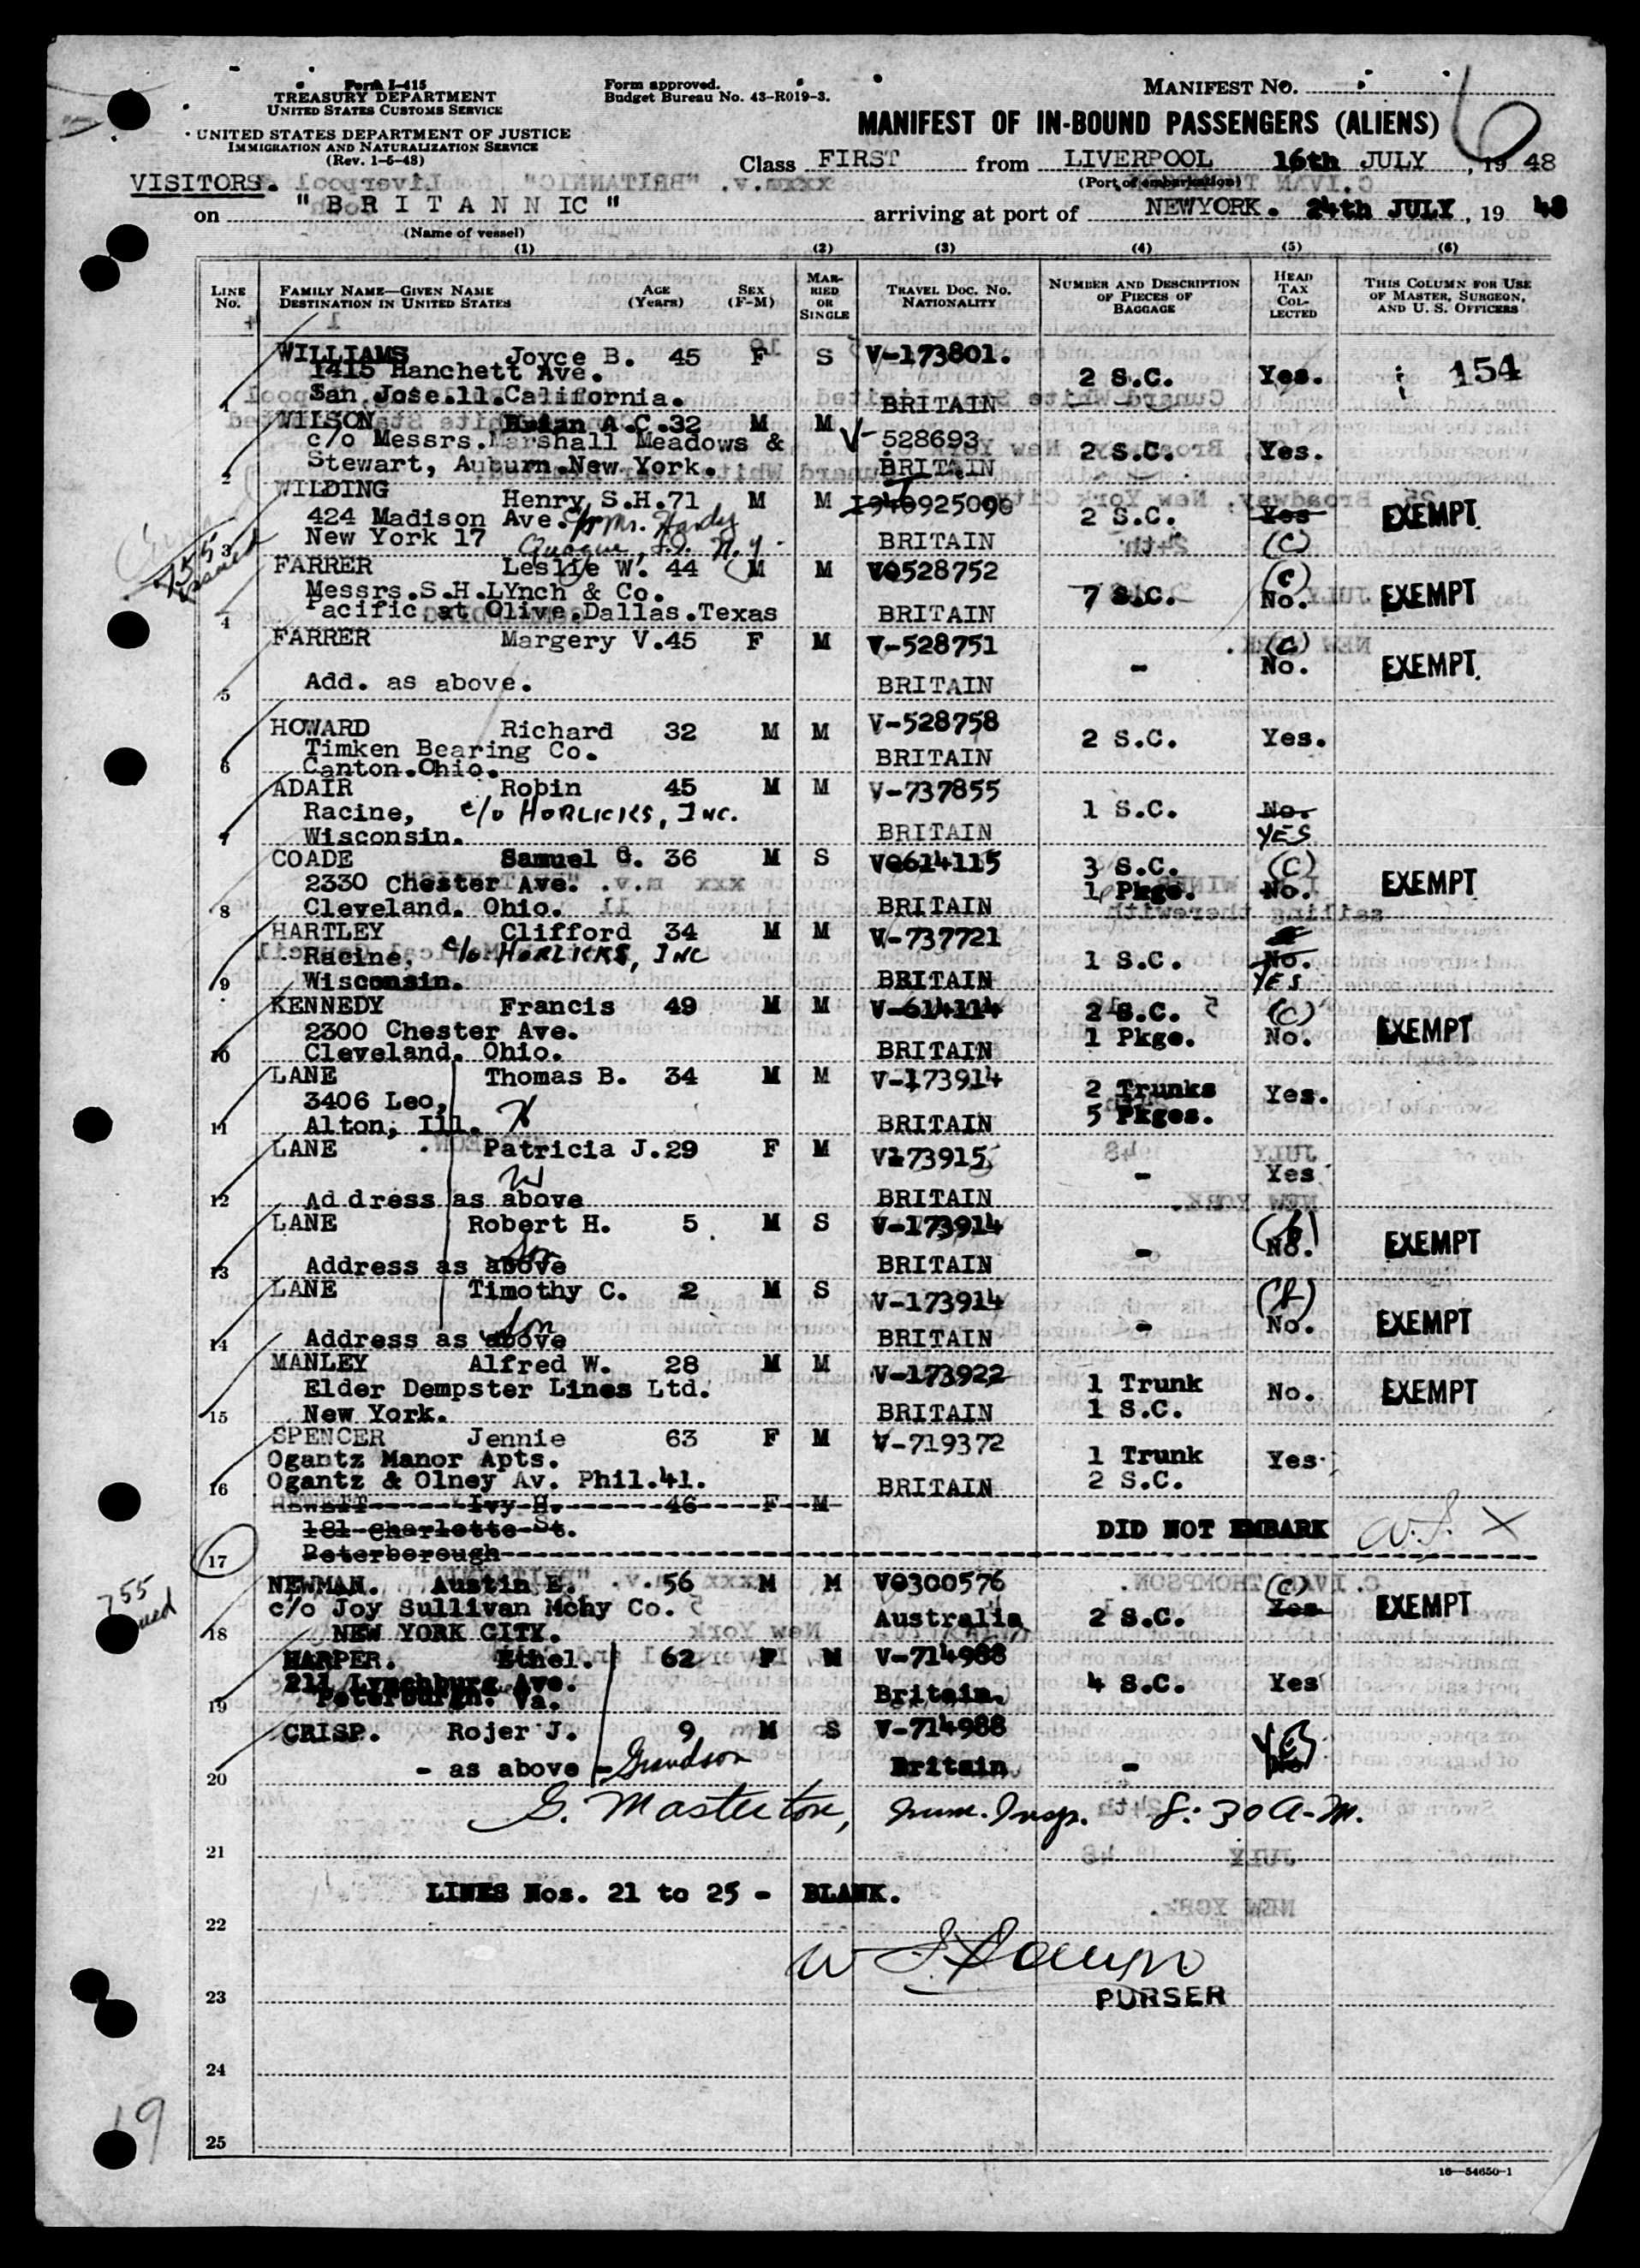 Form I-415
TREASURY DEPARTMENT
UNITED STATES CUSTOMS SERVICE
UNITED STATES DEPARTMENT OF JUSTICE
IMMIGRATION AND NATURALIZATION SERVICE
(Rev. 1-6-48)
Form approved.
Budget Bureau No. 43-R019-3.
MANIFEST NO.
6
MANIFEST OF IN-BOUND PASSENGERS (ALIENS)
Class FIRST from LIVERPOOL 16th JULY, 19 48
(Port of embarkation)
VISITORS.
on "BRITANNIC" arriving at port of NEWYORK. 24th JULY, 19 48
(Name of vessel)
(1) (2) (3) (4) (5) (6)
LINE NO. FAMILY NAME—GIVEN NAME DESTINATION IN UNITED STATES AGE (Years) SEX (F-M) MARRIED OR SINGLE TRAVEL DOC. NO. NATIONALITY NUMBER AND DESCRIPTION OF PIECES OF BAGGAGE HEAD TAX COLLECTED THIS COLUMN FOR USE OF MASTER, SURGEON, AND U. S. OFFICERS
WILLIAMS Joyce B. 45 F S V-173801.
1415 Hanchett Ave. 2 S.C. Yes. 154
1 San Jose.11.California. BRITAIN
WILSON Brian A.C. 32 M M V-528693
c/o Messrs.Marshall Meadows & 2 S.C. Yes.
2 Stewart, Auburn.New York. BRITAIN
WILDING Henry S.H. 71 M M 925090
424 Madison Ave. c/o Mr. Hardy 2 S.C. Yes EXEMPT
3 New York 17 Quogue, L.I. N.Y. BRITAIN (C)
FARRER Leslie W. 44 M M VO528752 (C)
Messrs.S.H.LYnch & Co. 7 S.C. No. EXEMPT
4 Pacific at Olive.Dallas.Texas BRITAIN
FARRER Margery V. 45 F M V-528751 (C)
- No. EXEMPT
5 Add. as above. BRITAIN
HOWARD Richard 32 M M V-528758
Timken Bearing Co. 2 S.C. Yes.
6 Canton.Ohio. BRITAIN
ADAIR Robin 45 M M V-737855
Racine, c/o HORLICKS, INC. 1 S.C. No.
7 Wisconsin. BRITAIN YES
COADE Samuel G. 36 M S VO614115 3 S.C. (C)
2330 Chester Ave. 1 Pkge. No. EXEMPT
8 Cleveland. Ohio. BRITAIN
HARTLEY Clifford 34 M M V-737721
Racine, c/o HORLICKS, INC 1 S.C. No.
9 Wisconsin. BRITAIN YES
KENNEDY Francis 49 M M V-614114 2 S.C. (C)
2300 Chester Ave. 1 Pkge. No. EXEMPT
10 Cleveland. Ohio. BRITAIN
LANE Thomas B. 34 M M V-173914 2 Trunks Yes.
3406 Leo, 5 Pkges.
11 Alton, Ill. H BRITAIN
LANE Patricia J. 29 F M V173915
W - Yes
12 Address as above BRITAIN
LANE Robert H. 5 M S V-173914
Son - No. EXEMPT
13 Address as above BRITAIN
LANE Timothy C. 2 M S V-173914
Son - No. EXEMPT
14 Address as above BRITAIN
MANLEY Alfred W. 28 M M V-173922
Elder Dempster Lines Ltd. 1 Trunk No. EXEMPT
15 New York. BRITAIN 1 S.C.
SPENCER Jennie 63 F M V-719372
Ogantz Manor Apts. 1 Trunk Yes
16 Ogantz & Olney Av. Phil.41. BRITAIN 2 S.C.
HEWETT Ivy H. 46 F M
181 Charlotte St. DID NOT EMBARK
17 Peterborough
NEWMAN. Austin E. 56 M M VO300576 (C)
c/o Joy Sullivan Mchy Co. Australia 2 S.C. Yes EXEMPT
18 NEW YORK CITY.
HARPER. Ethel. 62 F M V-714988
211 Lynchburg Ave. Britain. 4 S.C. Yes
19 Peterburgh. Va.
CRISP. Rojer J. 9 M S V-714988 YES
20 - as above - Grandson Britain -
G. Masterton, Imm. Insp. 8:30 A.M.
21
LINES Nos. 21 to 25 - BLANK.
22
PURSER
23
24
25
16—54650-1